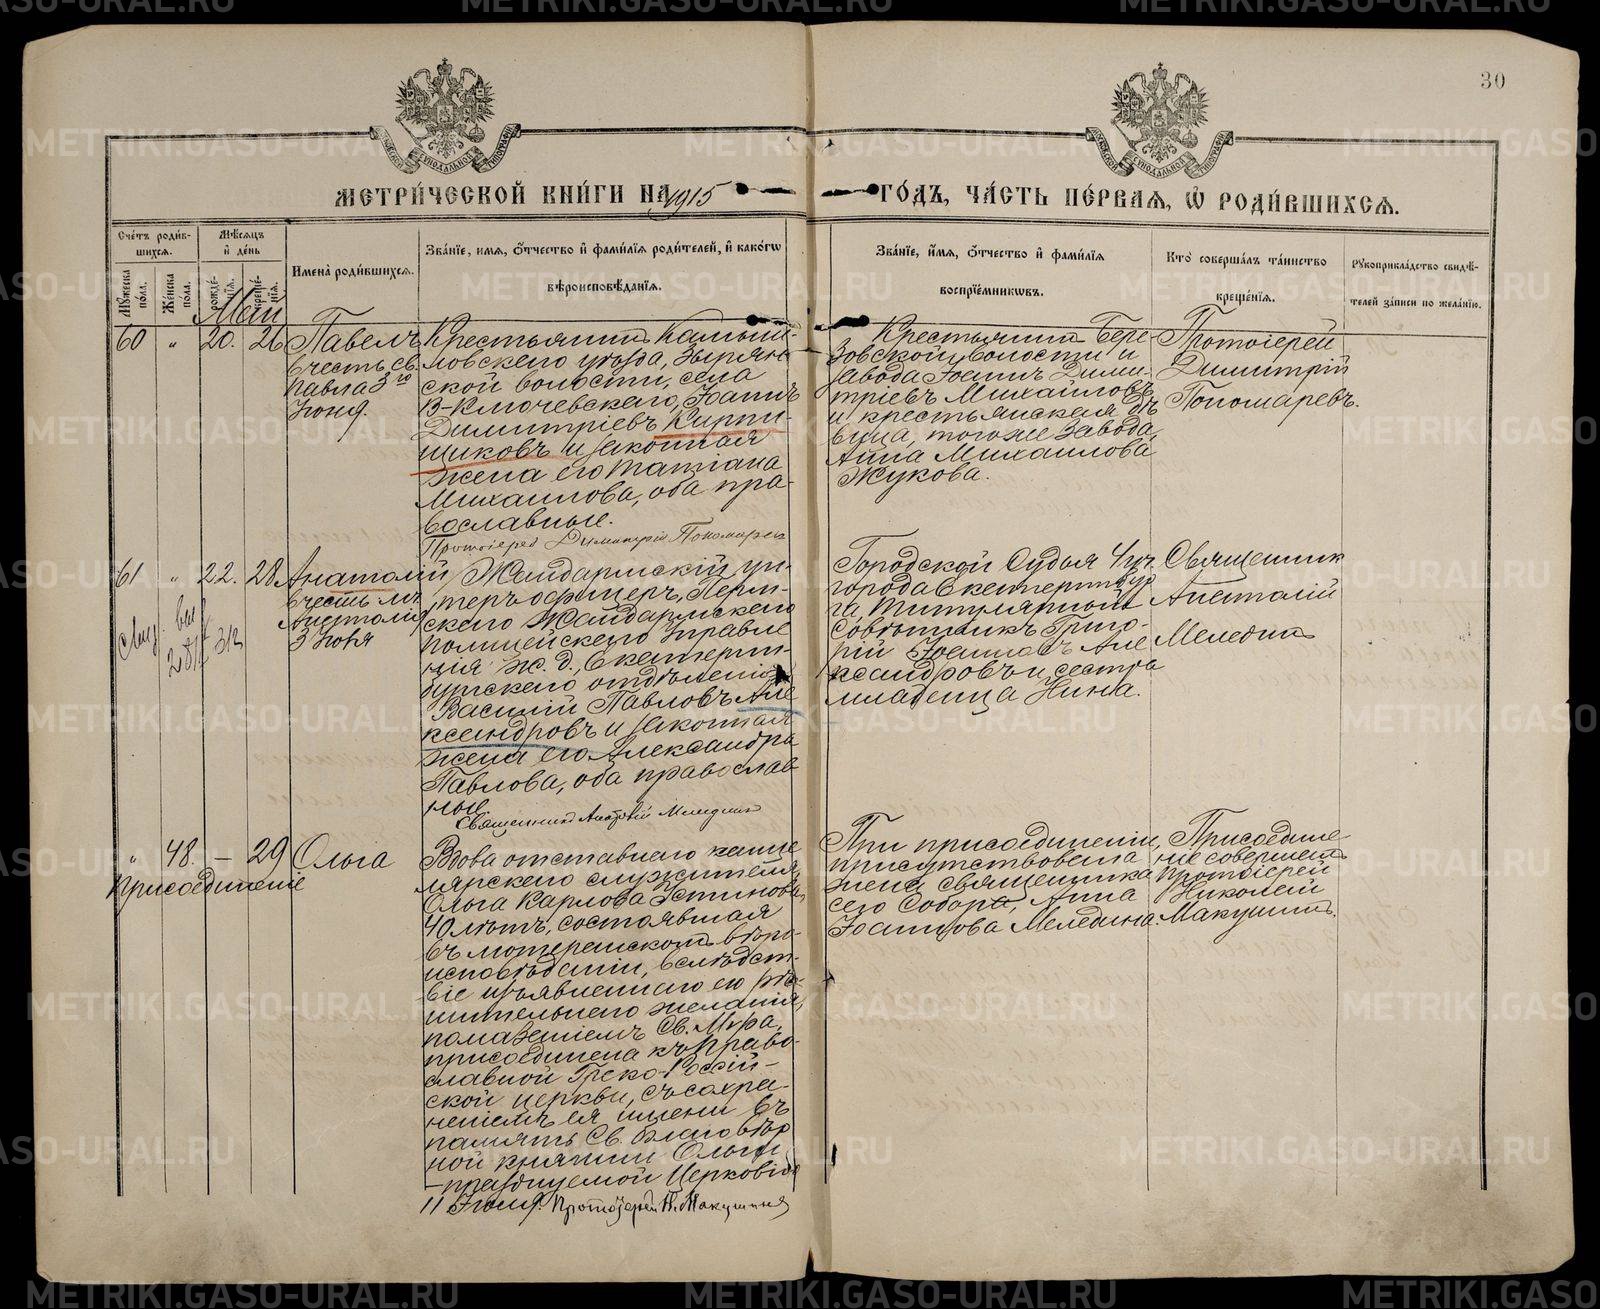 30
МЕТРИ́ЧЕСКОЙ КНИ́ГИ НА 1915
ГО́ДЪ, ЧА́СТЬ ПЕ́РВАѦ, Ѡ РОДИ́ВШИХСѦ.
Сче́тъ роди́в-
шихсѧ.
Мꙋ́жеска по́ла.
Же́нска по́ла.
Мѣ́сѧцъ
и҆ де́нь
рожде́-
нїѧ.
креще́-
нїѧ.
И҆мена̀ роди́вшихсѧ.
Зва́нїе, и҆мѧ, ѻ҆́тчество и҆ фами́лїѧ роди́телей, и҆ како́гѡ
вѣроисповѣ́данїѧ.
Зва́нїе, и҆́мѧ, ѻ҆́тчество и҆ фами́лїѧ
воспрїе́мникѡвъ.
Кто̀ соверша́лъ та́инство
креще́нїѧ.
Рꙋкоприкла́дство свидѣ́-
телей за́писи по жела́нїю.
Май
60 " 20. 26
Павелъ
въ честь св.
Павла 3го
Іюня.
Крестьянинъ Камыш-
ловскаго уѣзда, Зырян-
ской волости, села
В-Ключевскаго, Іоаннъ
Димитріевъ Кирпи-
щиковъ и законная
жена его Татіана
Михаилова, оба пра-
вославные.
Протоіерей Димитрій Пономаревъ
Крестьянинъ Бере-
зовской волости и
завода Іоаннъ Дими-
тріевъ Михайловъ
и крестьянская дѣ-
вица, того же завода,
Анна Михаилова
Жукова.
Протоіерей
Димитрій
Пономаревъ.
61 " 22. 28
Анатолій
въ честь мч.
Анатолія
3 Іюня
Жандармскій ун-
теръ-офицеръ, Перм-
скаго Жандармскаго
полицейскаго Управле
нія ж. д. Екатерин-
бургскаго отдѣленія
Василій Павловъ Але
ксандровъ и законная
жена его Александра
Павлова, оба православ-
ные
Священникъ Анатолій Меледин
Городской Судья 4 уч.
города Екатеринбур
га, Титулярный
Совѣтникъ Григо-
рій Іоанновъ Але
ксандровъ и сестра
младенца Нина.
Священник
Анатолій
Меледин
" 48. – 29
Присоединеніе
Ольга
Вдова отставнаго канце
лярскаго служителя,
Ольга Карлова Устинова,
40 лѣтъ, состоявшая
въ лютеранскомъ вѣро-
исповѣданіи, вслѣдст-
віе изъявленнаго ею рѣ-
шительнаго желанія,
помазаніемъ Св. Мѵра,
присоединена къ Право-
славной Греко-Россій-
ской церкви, съ сохра-
неніемъ ея имени въ
память Св. Благовѣр
ной княгини Ольги
– празднуемой Церковію
11 Іюля. Протоіерей Н. Макушинъ
При присоединеніи
присутствовала
жена священника
сего Собора, Анна
Іоаннова Меледина.
Присоедине
ніе совершалъ
Протоіерей
Николай
Макушинъ.
METRIKI.GASO-URAL.RU